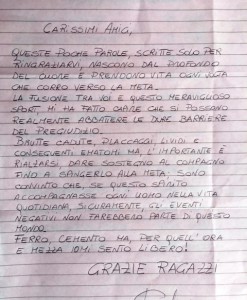 CARISSIMI AMICI,
QUESTE POCHE PAROLE, SCRITTE SOLO PER
RINGRAZIARVI, NASCONO DAL PROFONDO
DEL CUORE E PRENDONO VITA OGNI VOLTA
CHE CORRO VERSO LA META.
LA FUSIONE TRA VOI E QUESTO MERAVIGLIOSO
SPORT, MI HA FATTO CAPIRE CHE SI POSSONO
REALMENTE ABBATTERE LE DURE BARRIERE
DEL PREGIUDIZIO.
BRUTTE CADUTE, PLACCAGGI, LIVIDI E
CONSEGUENTI EMATOMI MA, L'IMPORTANTE È
RIALZARSI, DARE SOSTEGNO AL COMPAGNO
FINO A SPINGERLO ALLA META! SONO
CONVINTO CHE, SE QUESTO SPIRITO
ACCOMPAGNASSE OGNI UOMO NELLA VITA
QUOTIDIANA, SICURAMENTE, GLI EVENTI
NEGATIVI NON FAREBBERO PARTE DI QUESTO
MONDO.
FERRO, CEMENTO MA, PER QUELL'ORA
E MEZZA IO MI SENTO LIBERO!
GRAZIE RAGAZZI